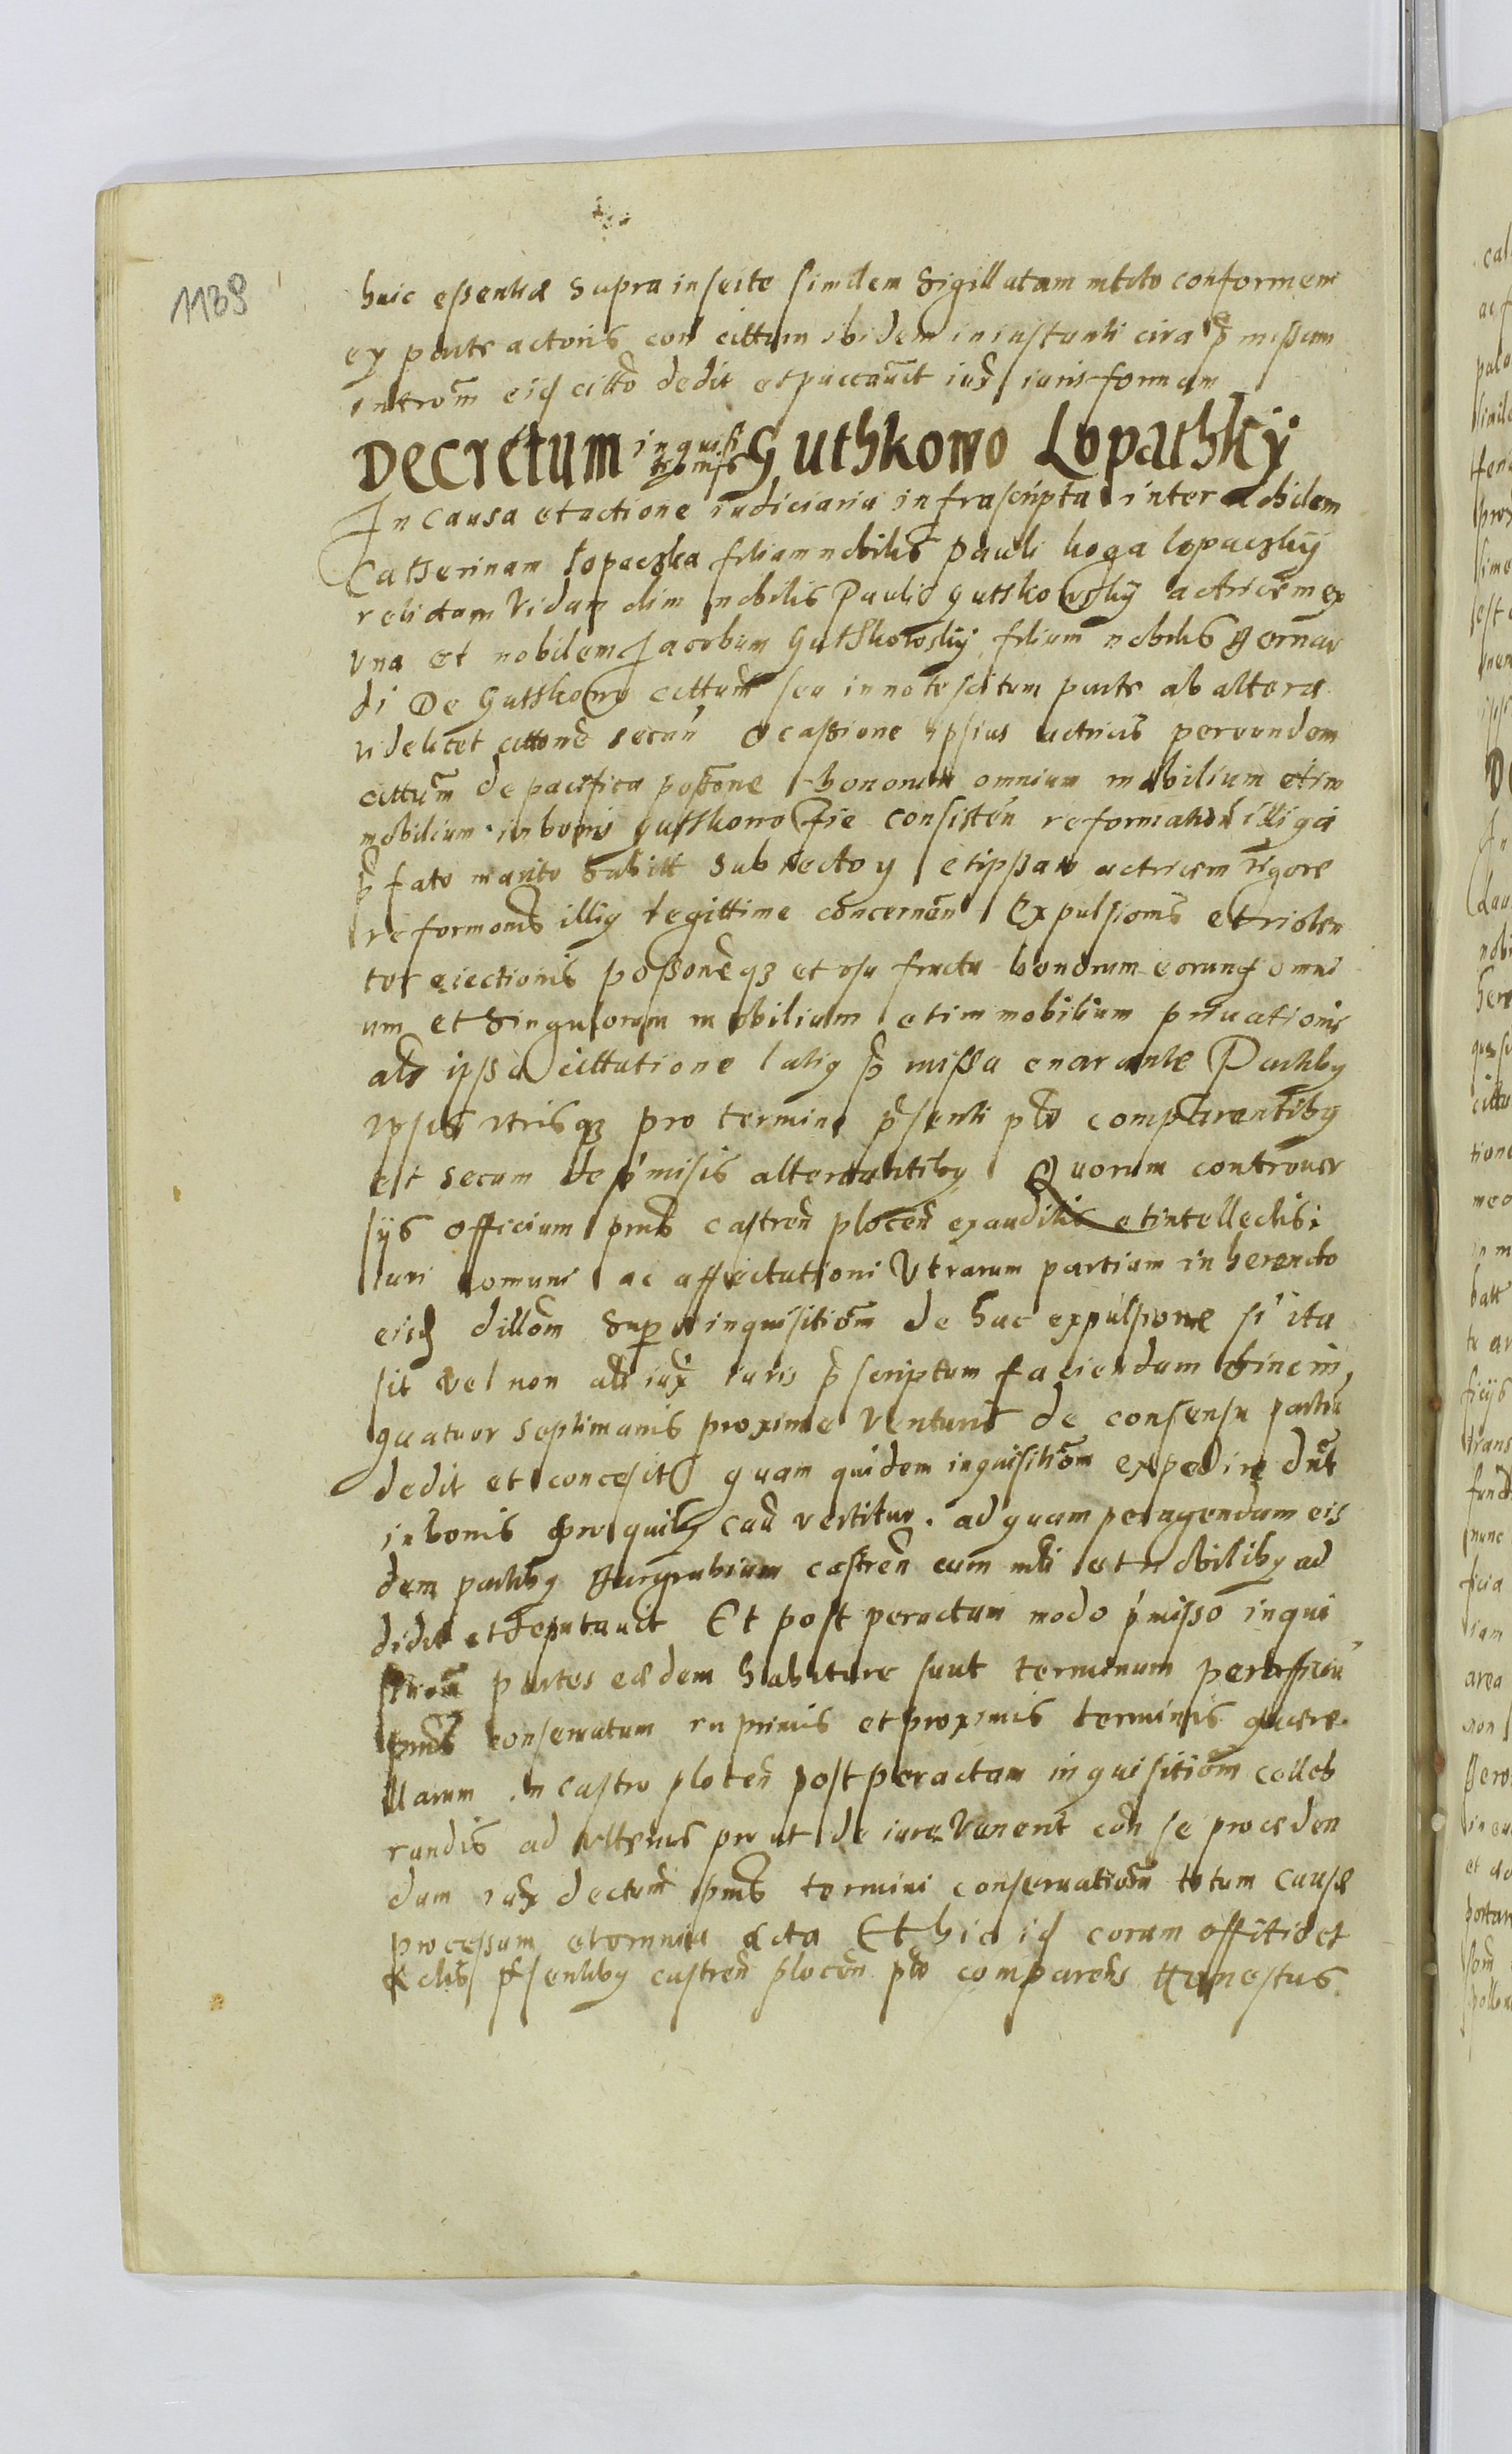 1138
huic essentiæ supra inserte similem sigillatam mtdto conformem
ex parte actoris con cittum ibidem in instanti circa p̃missam
introm̃ eid citto dedit et pactauit iux iuris formam
Decretum inquisitionis Guthkowo Lopathky
In causa et actione iudiciaria infrascripta inter nobilem
Catherinam Lopaczka filiam nobilis Pauli koga lopaczky
relictam viduam olim nobilis Pauli gutskowsky actricem ex
vna et nobilem Jacobum Guthkowsky filium nobilis Bernar
di De Gutskowo cittum seu innotescitum parte ab altera
videlicet citone secun ocassione ipsius actricis per eundem
cittum de pacifica possone bonorum omnium mobilium et im
mobilium in bonis gutkowo sie consisten reformation illi a
p̃fato marito subitt subiecto et ipsam actricem rigore
reformonis illiq legittime concernen Expulsionis et violen
tor eiectionis possoneqz et vsu fructu bonorum eorund omni
um et singulorum mobilium et immobilium priuationis
als ipsa cittatione latiq p̃missa enarrante Partibq
ipsis vtrisqz pro termino p̃senti pto comparentibq
et secum de p̃misis altercantibq Quorum controuer
sys officium pms castren plocen exauditis et intellectis
iuri comuni ac affectationi Vtrarum partium inherendo
eisd dillom super inquisitiom de hac expulsione si ita
sit vel non als iux iuris p̃scriptum faciendam hinc in
quatuor septimanis proxime venturis de consensu partiu
dedit et concesit quam quidem inquisitiom expedire dnt
in bonis pro quibq cau vertitur. ad quam peragendam eis
dem partibq Burgrabium castren cum mli et nobilibq ad
didit et deputauit Et post peractam modo p̃misso inqui
sitiom partes eædem habiture sunt terminum per officiu
pms conseruatum in primis et proximis terminis quære
llarum in castro plocen post peractam inquisitiom celleb
randis ad vlterius prout de iure venerit con se proceden
dum iux dectum pms termini conseruatiom totum causæ
processum et omnia acta Et hic id coram offitio et
actis p̃sentibq castren plocen pto comparens Honestus